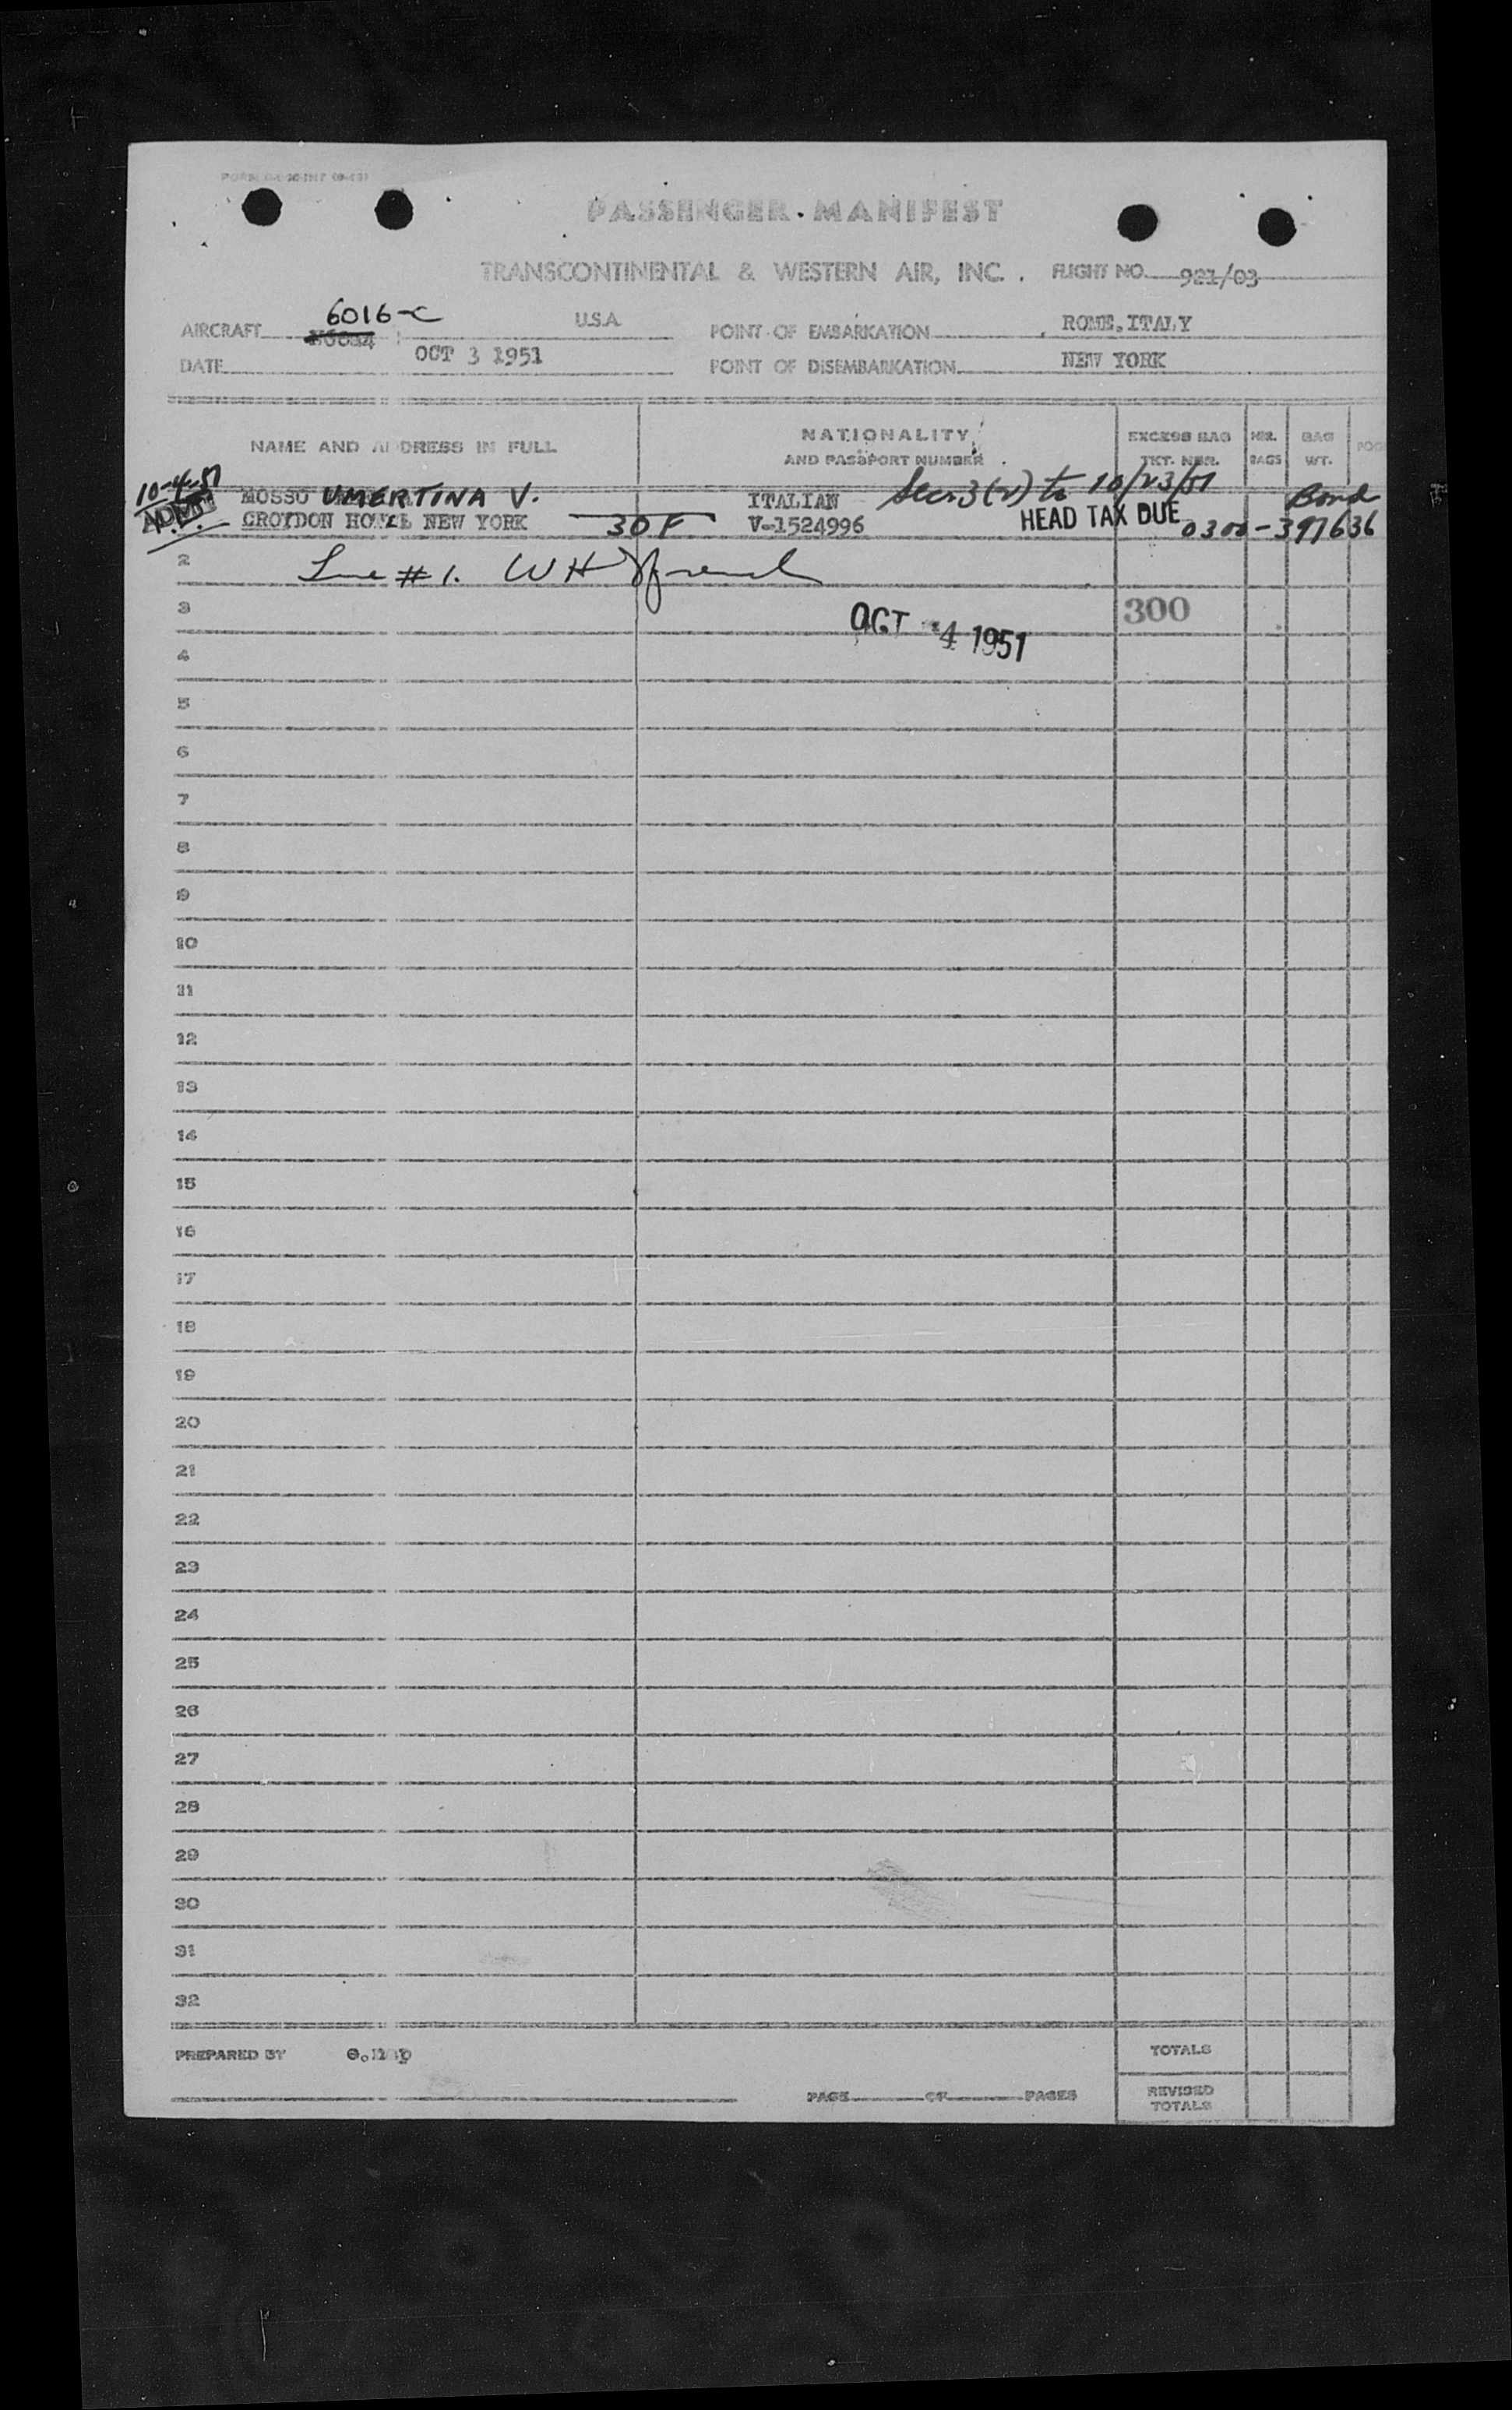 PASSENGER MANIFEST
TRANSCONTINENTAL & WESTERN AIR, INC. FLIGHT NO. 921/03
6016-C
AIRCRAFT U.S.A. POINT OF EMBARKATION ROME, ITALY
DATE OCT 3 1951 POINT OF DISEMBARKATION NEW YORK
NAME AND ADDRESS IN FULL NATIONALITY AND PASSPORT NUMBER EXCESS BAG TKT. NBR. NBR. BAGS BAG WT.
10-4-51 MOSSO UMERTINA V. ITALIAN Sec 3(2) to 10/23/51 Bond
CROYDON HOTEL NEW YORK 30 F V-1524996 HEAD TAX DUE 0300-397636
2 Line #1. WH
3 300
OCT 4 1951
4
5
6
7
8
9
10
11
12
13
14
15
16
17
18
19
20
21
22
23
24
25
26
27
28
29
30
31
32
PREPARED BY TOTALS
PAGE OF PAGES REVISED TOTALS